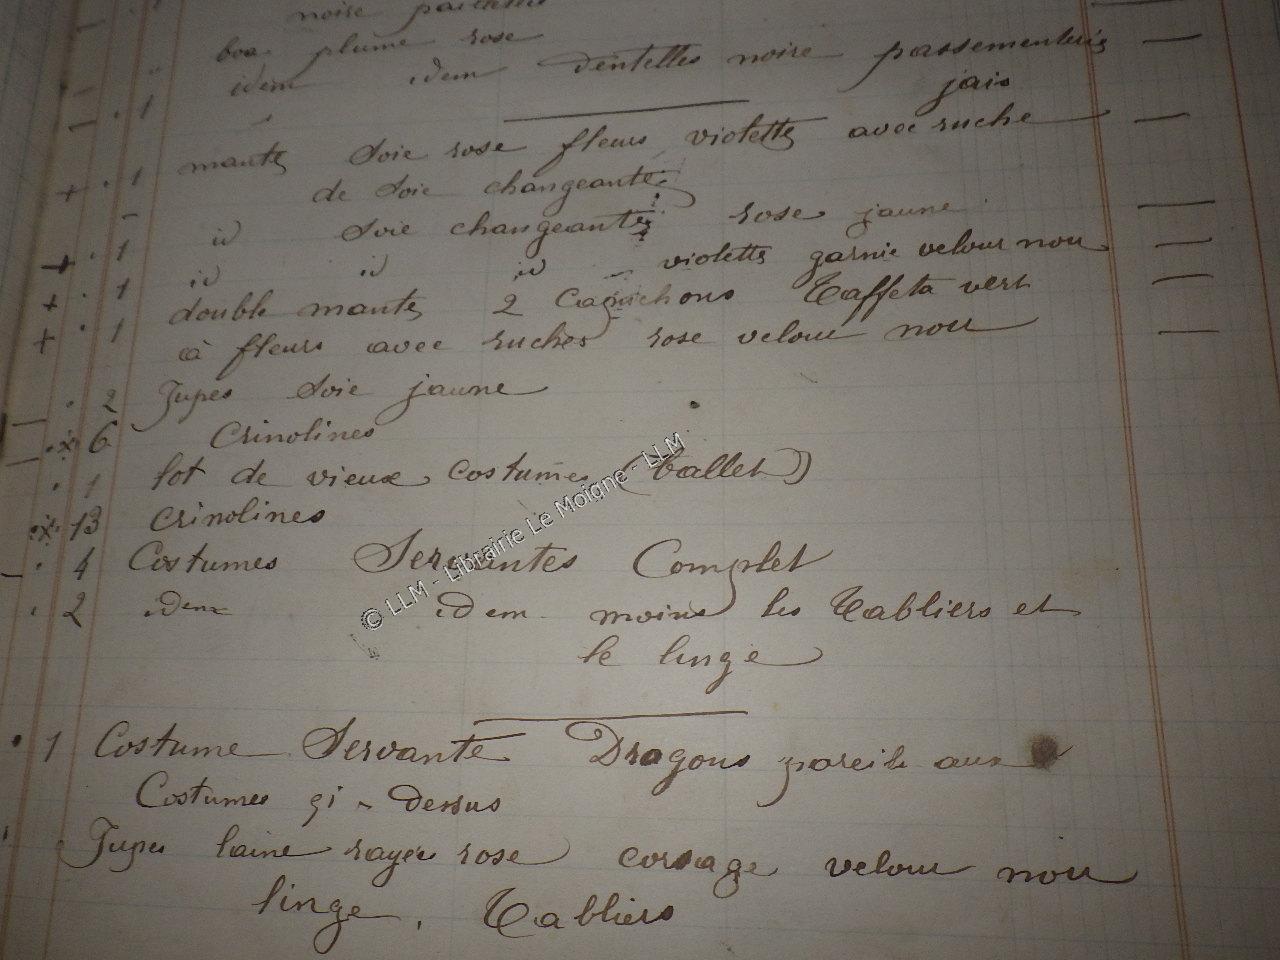 noire pailletées
boa plume rose
1 idem idem dentelles noire passementerie
jais
1 mante Soie rose fleurs violette avec ruche
de Soie changeante
1 id Soie changeante rose jaune
1 id id id violette garnie velour noir
1 double mante 2 Capuchons Taffeta vert
à fleurs avec ruches rose velour noir
2 Jupes Soie jaune
6 Crinolines
1 lot de vieux costumes (Ballet)
13 Crinolines
4 Costumes Servantes Complet
2 idem idem moins les Tabliers et
le linge
1 Costume Servante Dragons pareils aux
Costumes çi-dessus
Jupes laine rayée rose corsage velour noir
linge, Tabliers
© LLM - Librairie Le Moigne - LLM